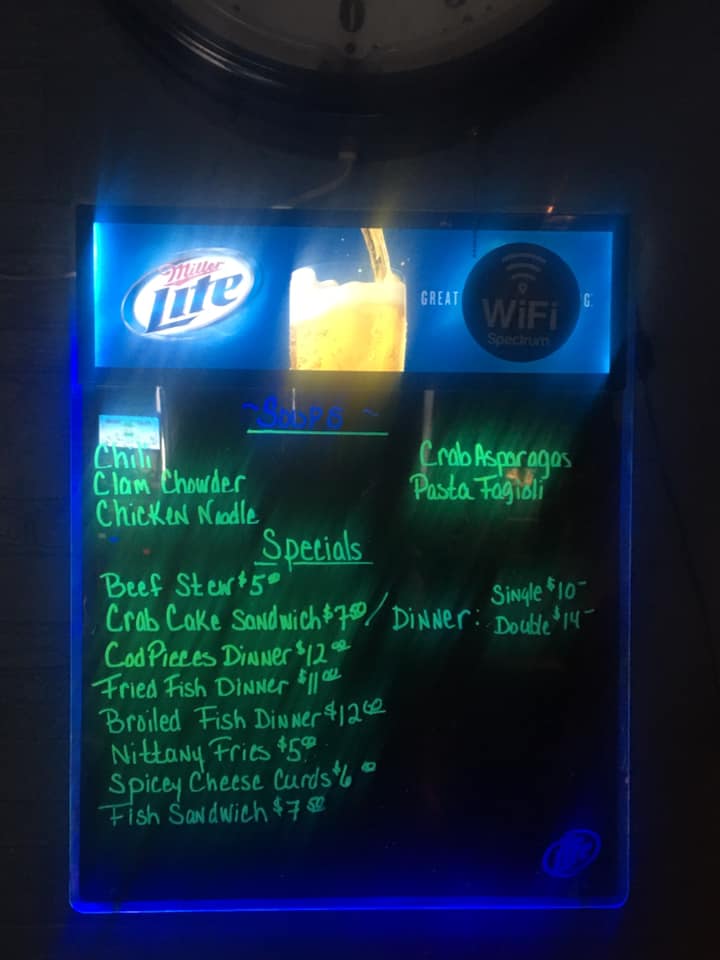 0
Miller
Lite
GREAT
WiFi
Spectrum
G.
~Soups~
Chili
Clam Chowder
Chicken Noodle
Crab Asparagas
Pasta Fagioli
Specials
Beef Stew $5.00
Crab Cake Sandwich $7.50 / Dinner: Single $10-
Double $14-
Cod Pieces Dinner $12.00
Fried Fish Dinner $11.00
Broiled Fish Dinner $12.00
Nittany Fries $5.00
Spicey Cheese Curds $6.00
Fish Sandwich $7.50